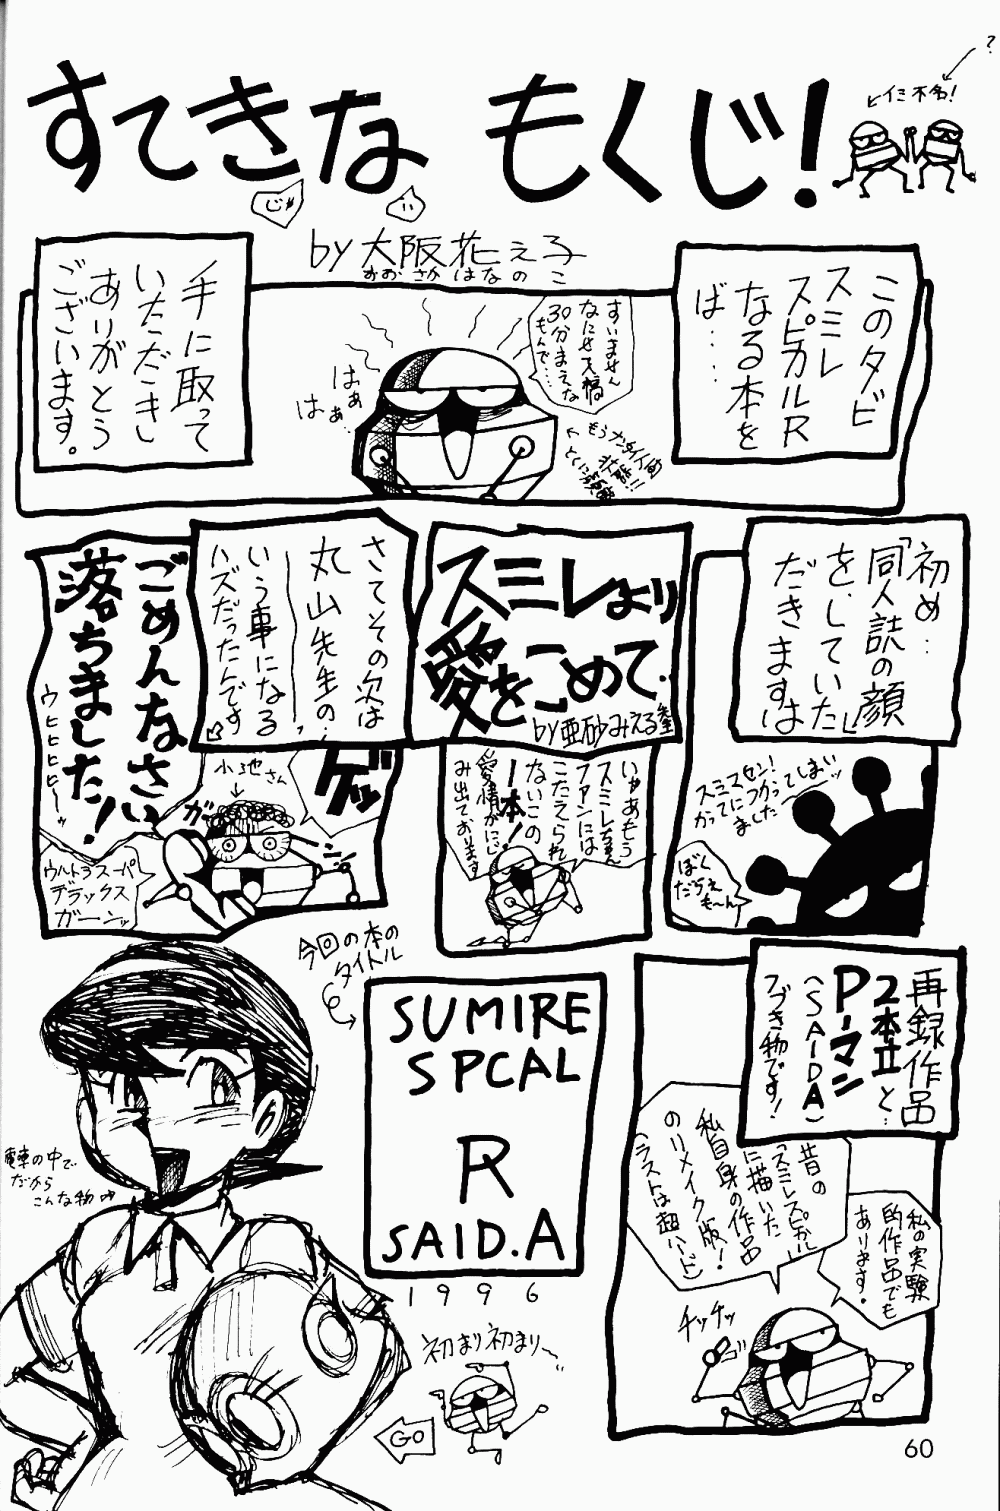 すてきな もくじ!
じゃ
い
?
イミ不名!
by 大阪花え子
おおさかはなのこ
このタビ
スミレ
スピカルR
なる本を
ば…
すいません
なにせ入稿
30分まえな
もんで…
はぁ
はぁ…
もうナンタイ人間
状態!!
手に取って
いただき
ありがとう
ございます。
初め…
「同人誌の顔」
を、していた
だきますは
スミマセン!
かってにつかって
しまいッ
ました
ぼく
だちえ
も〜ん
スミレより
愛をこめて.
by 亜砂みえる
いやあもう
スミレちゃん
ファンには
こたえられ
ないこの
1本!
愛情がにじ
み出ております
さてその次は
丸山先生の…
いう事になる
ハズだったんです
ゲッ
ごめんなさい
落ちました!
ウヒヒヒヒ〜ッ
小池さん
ガ
ーン
ウルトラスーパー
デラックス
ガーンッ
再録作品
2本立と…
P-マン
(SAIDA)
つづき物です!
昔の
「スミレスピカル」
に描いた
私自身の作品
のリメイク版!
(ラストは超ハード)
私の実験
的作品でも
あります.
チッチッ
今回の本の
タイトル
SUMIRE
SPCAL
R
SAID.A
1996
電車の中で
だから
こんな物
初まり初まり〜
GO
60